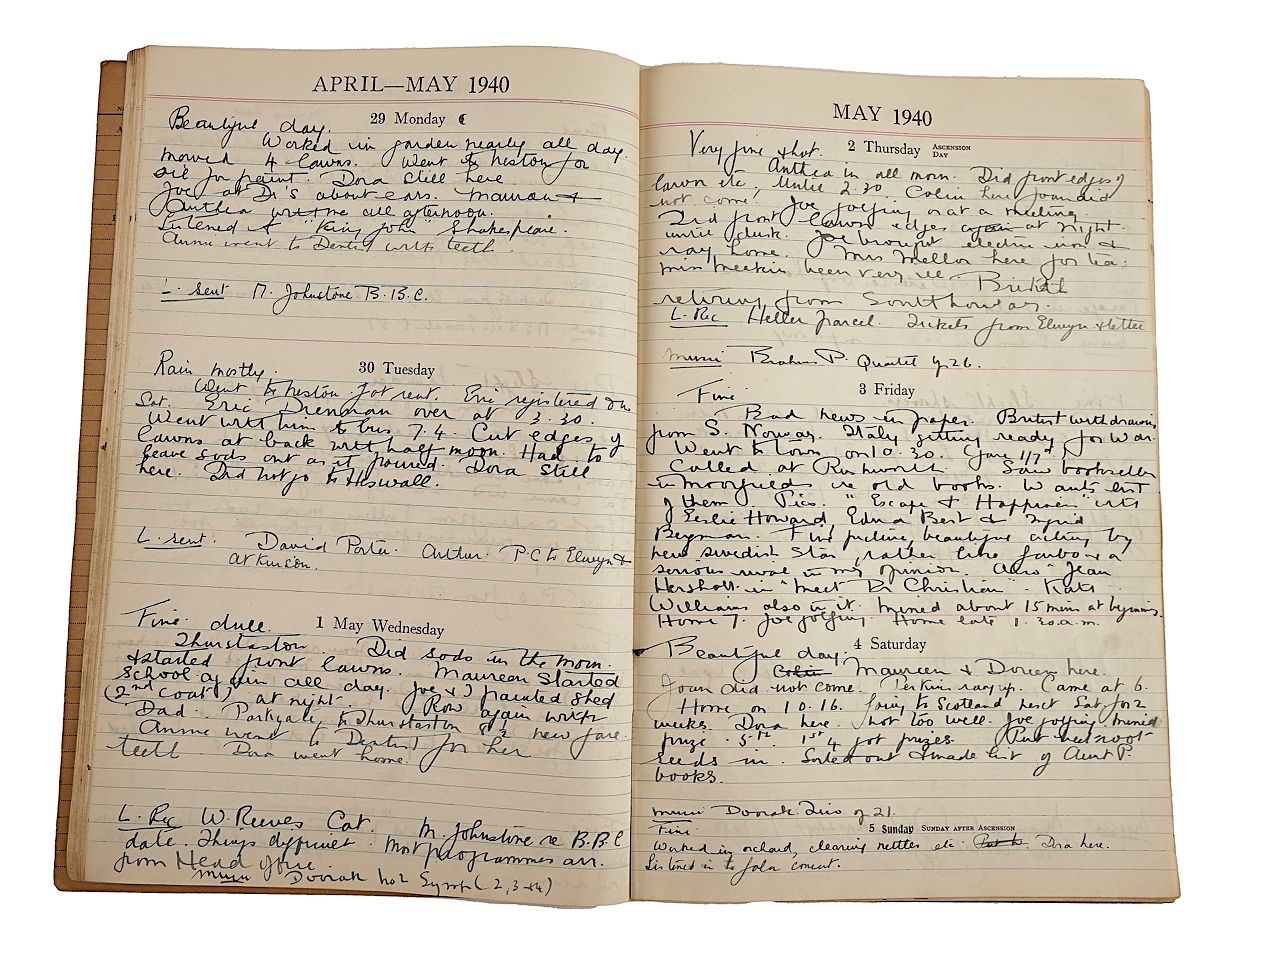 APRIL—MAY 1940
29 Monday
Beautiful day.
Worked in garden nearly all day.
mowed 4 lawns. Went to Heston for
oil for paint. Dora still here.
Joe at Di's about cars. Maureen +
Anthea with me all afternoon.
Listened to "King John" Shakespeare.
Annie went to Dentist with teeth.
L. sent M. Johnstone B.B.C.
30 Tuesday
Rain mostly.
Went to Heston for rent. Eric registered on
Sat. Eric Drennan over at 3.30.
Went with him to bus 7.4. Cut edges of
lawns at back with half moon. Had to
leave sods out as it poured. Dora still
here. Did not go to Heswall.
L. sent. David Porter. Arthur. P.C to Elwyn &
Atkinson.
1 May Wednesday
Fine. dull.
Thurstaston. Did sods in the morn.
& started front lawns. Maureen started
school again all day. Joe & I painted shed
(2nd coat) at night. Row again with
Dad. Parkgate to Thurstaston 8½ new fare.
Annie went to Dentist for her
teeth Dora went home.
L. Rec W. Reeves Cat. M. Johnstone re B.B.C
date. Things difficult. Most programmes arr.
from Head Office.
music Dvorak No 2 Symph (2, 3 & 4)
MAY 1940
2 Thursday ASCENSION DAY
Very fine & hot.
Anthea in all morn. Did front edges of
lawn etc, until 2.30 Colin here Joan did
not come. Joe golfing or at a meeting.
Did front lawn edges again at night
until dusk. Joe brought electric iron &
ray home. Mrs Mellor here for tea.
Mrs Meekin been very ill. British
retiring from South Norway.
L. Rec Heller parcel. Tickets from Elwyn & letter
music Brahms P. Quartet Op 26.
3 Friday
Fine
Bad news in paper. British withdrawing
from S. Norway. Italy getting ready for War.
Went to town on 10.30. (fare 1/7d)
Called at Rushworth. Saw bookseller
in Moorfields re old books. Wants list
of them. Pics. "Escape to Happiness" with
Leslie Howard, Edna Best & Ingrid
Bergman. Fine picture, beautiful acting by
new Swedish Star, rather like Garbo & a
serious rival in my opinion. Also Jean
Hersholt in "Meet Dr Christian". Kats
Williams also in it. Missed about 15 mins at beginning.
Home 7. Joe golfing. Home late 1.30 a.m.
4 Saturday
Beautiful day.
Colin Maureen & Doreen here.
Joan did not come. Perkin ray up. Came at 6.
Home on 10.16. Going to Scotland next Sat for 2
weeks. Dora here. Not too well. Joe golfing missed
prize. 5th. 1st 4 got prizes. Put beetroot
seeds in. Sorted out & made list of Aunt P.
books.
music Dvorak Trio Op 21.
5 Sunday SUNDAY AFTER ASCENSION
Fine.
Worked in orchard, clearing nettles etc. Dora here.
Listened in to concert.